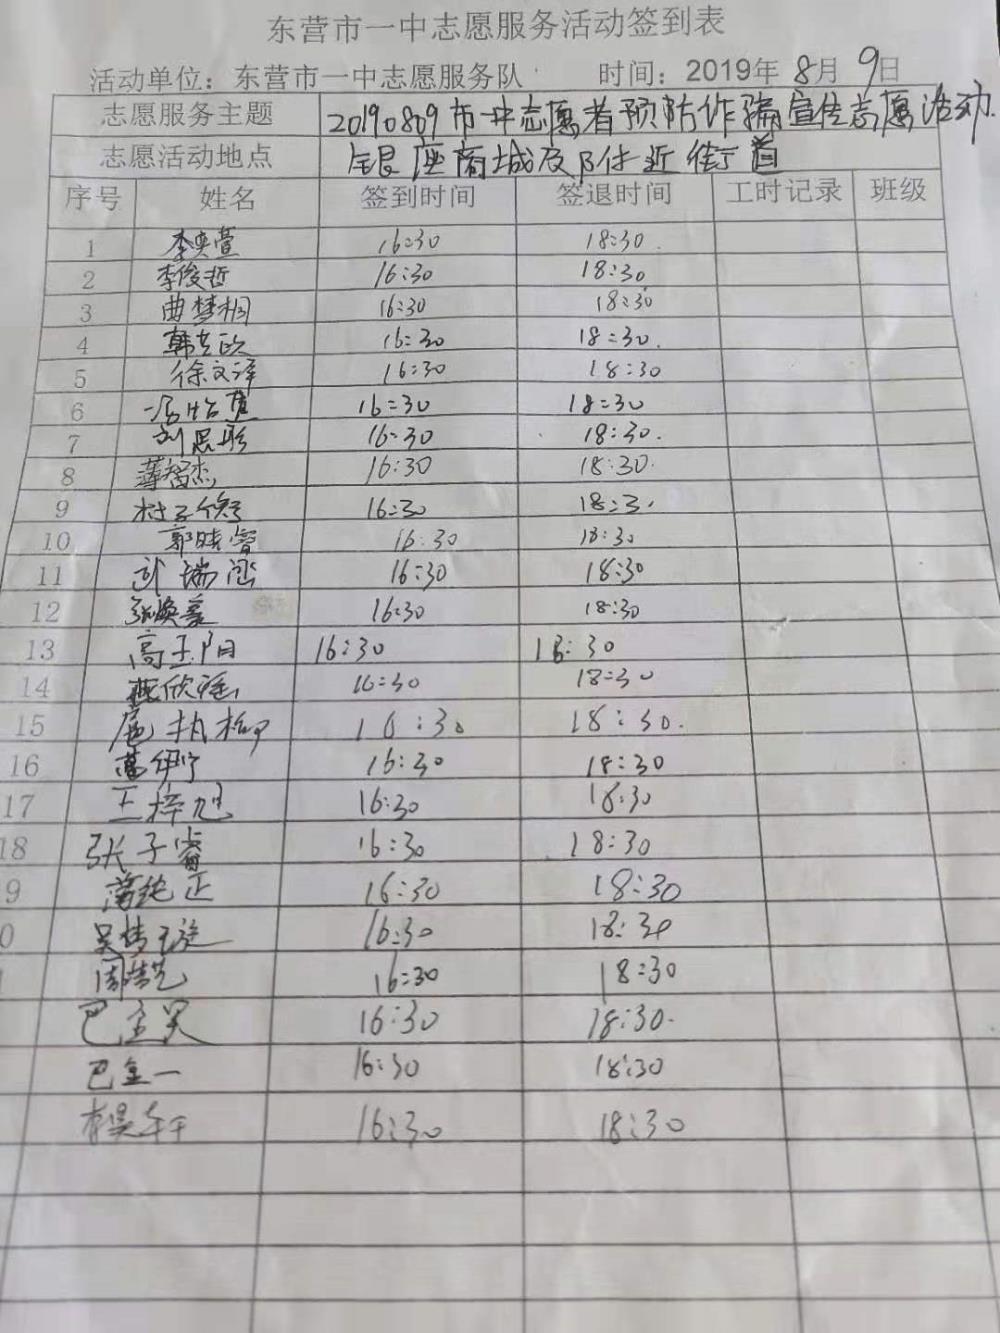 东营市一中志愿服务活动签到表
活动单位：东营市一中志愿服务队 时间：2019年 8月 9日
志愿服务主题 20190809市一中志愿者预防诈骗宣传志愿活动.
志愿活动地点 银座商城及附近街道
序号 姓名 签到时间 签退时间 工时记录 班级
1 李奕萱 16:30 18:30.
2 李俊哲 16:30 18:30
3 曲梦桐 16:30 18:30
4 16:30 18:30.
5 徐文泽 16:30 18:30
6 16:30 18:30
7 刘思彤 16:30 18:30.
8 薄智杰 16:30 18:30.
9 16:30 18:3.
10 郭晓睿 16:30 18:30
11 武瑞涵 16:30 18:30
12 张焕豪 16:30 18:30
13 高玉阳 16:30 18:30
14 燕欣瑶 16:30 18:30
15 扈执柳 16:30 18:30.
16 16:30 18:30
17 王梓旭 16:30 18:30
18 张子睿 16:30 18:30
9 薄纯正 16:30 18:30
0 吴梦璇 16:30 18:30
周浩艺 16:30 18:30
巴金昊 16:30 18:30.
巴金一 16:30 18:30
李昊轩 16:30 18:30